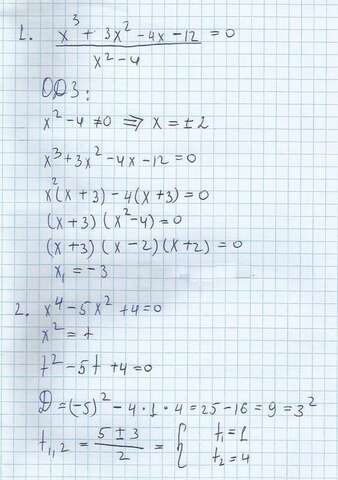 1. (x³ + 3x² - 4x - 12)/(x² - 4) = 0
ОДЗ:
x² - 4 ≠ 0 ⇒ x = ±2
x³ + 3x² - 4x - 12 = 0
x²(x + 3) - 4(x + 3) = 0
(x + 3)(x² - 4) = 0
(x + 3)(x - 2)(x + 2) = 0
x₁ = -3
2. x⁴ - 5x² + 4 = 0
x² = t
t² - 5t + 4 = 0
D = (-5)² - 4 · 1 · 4 = 25 - 16 = 9 = 3²
t₁,₂ = (5 ± 3)/2 = { t₁ = 1
t₂ = 4